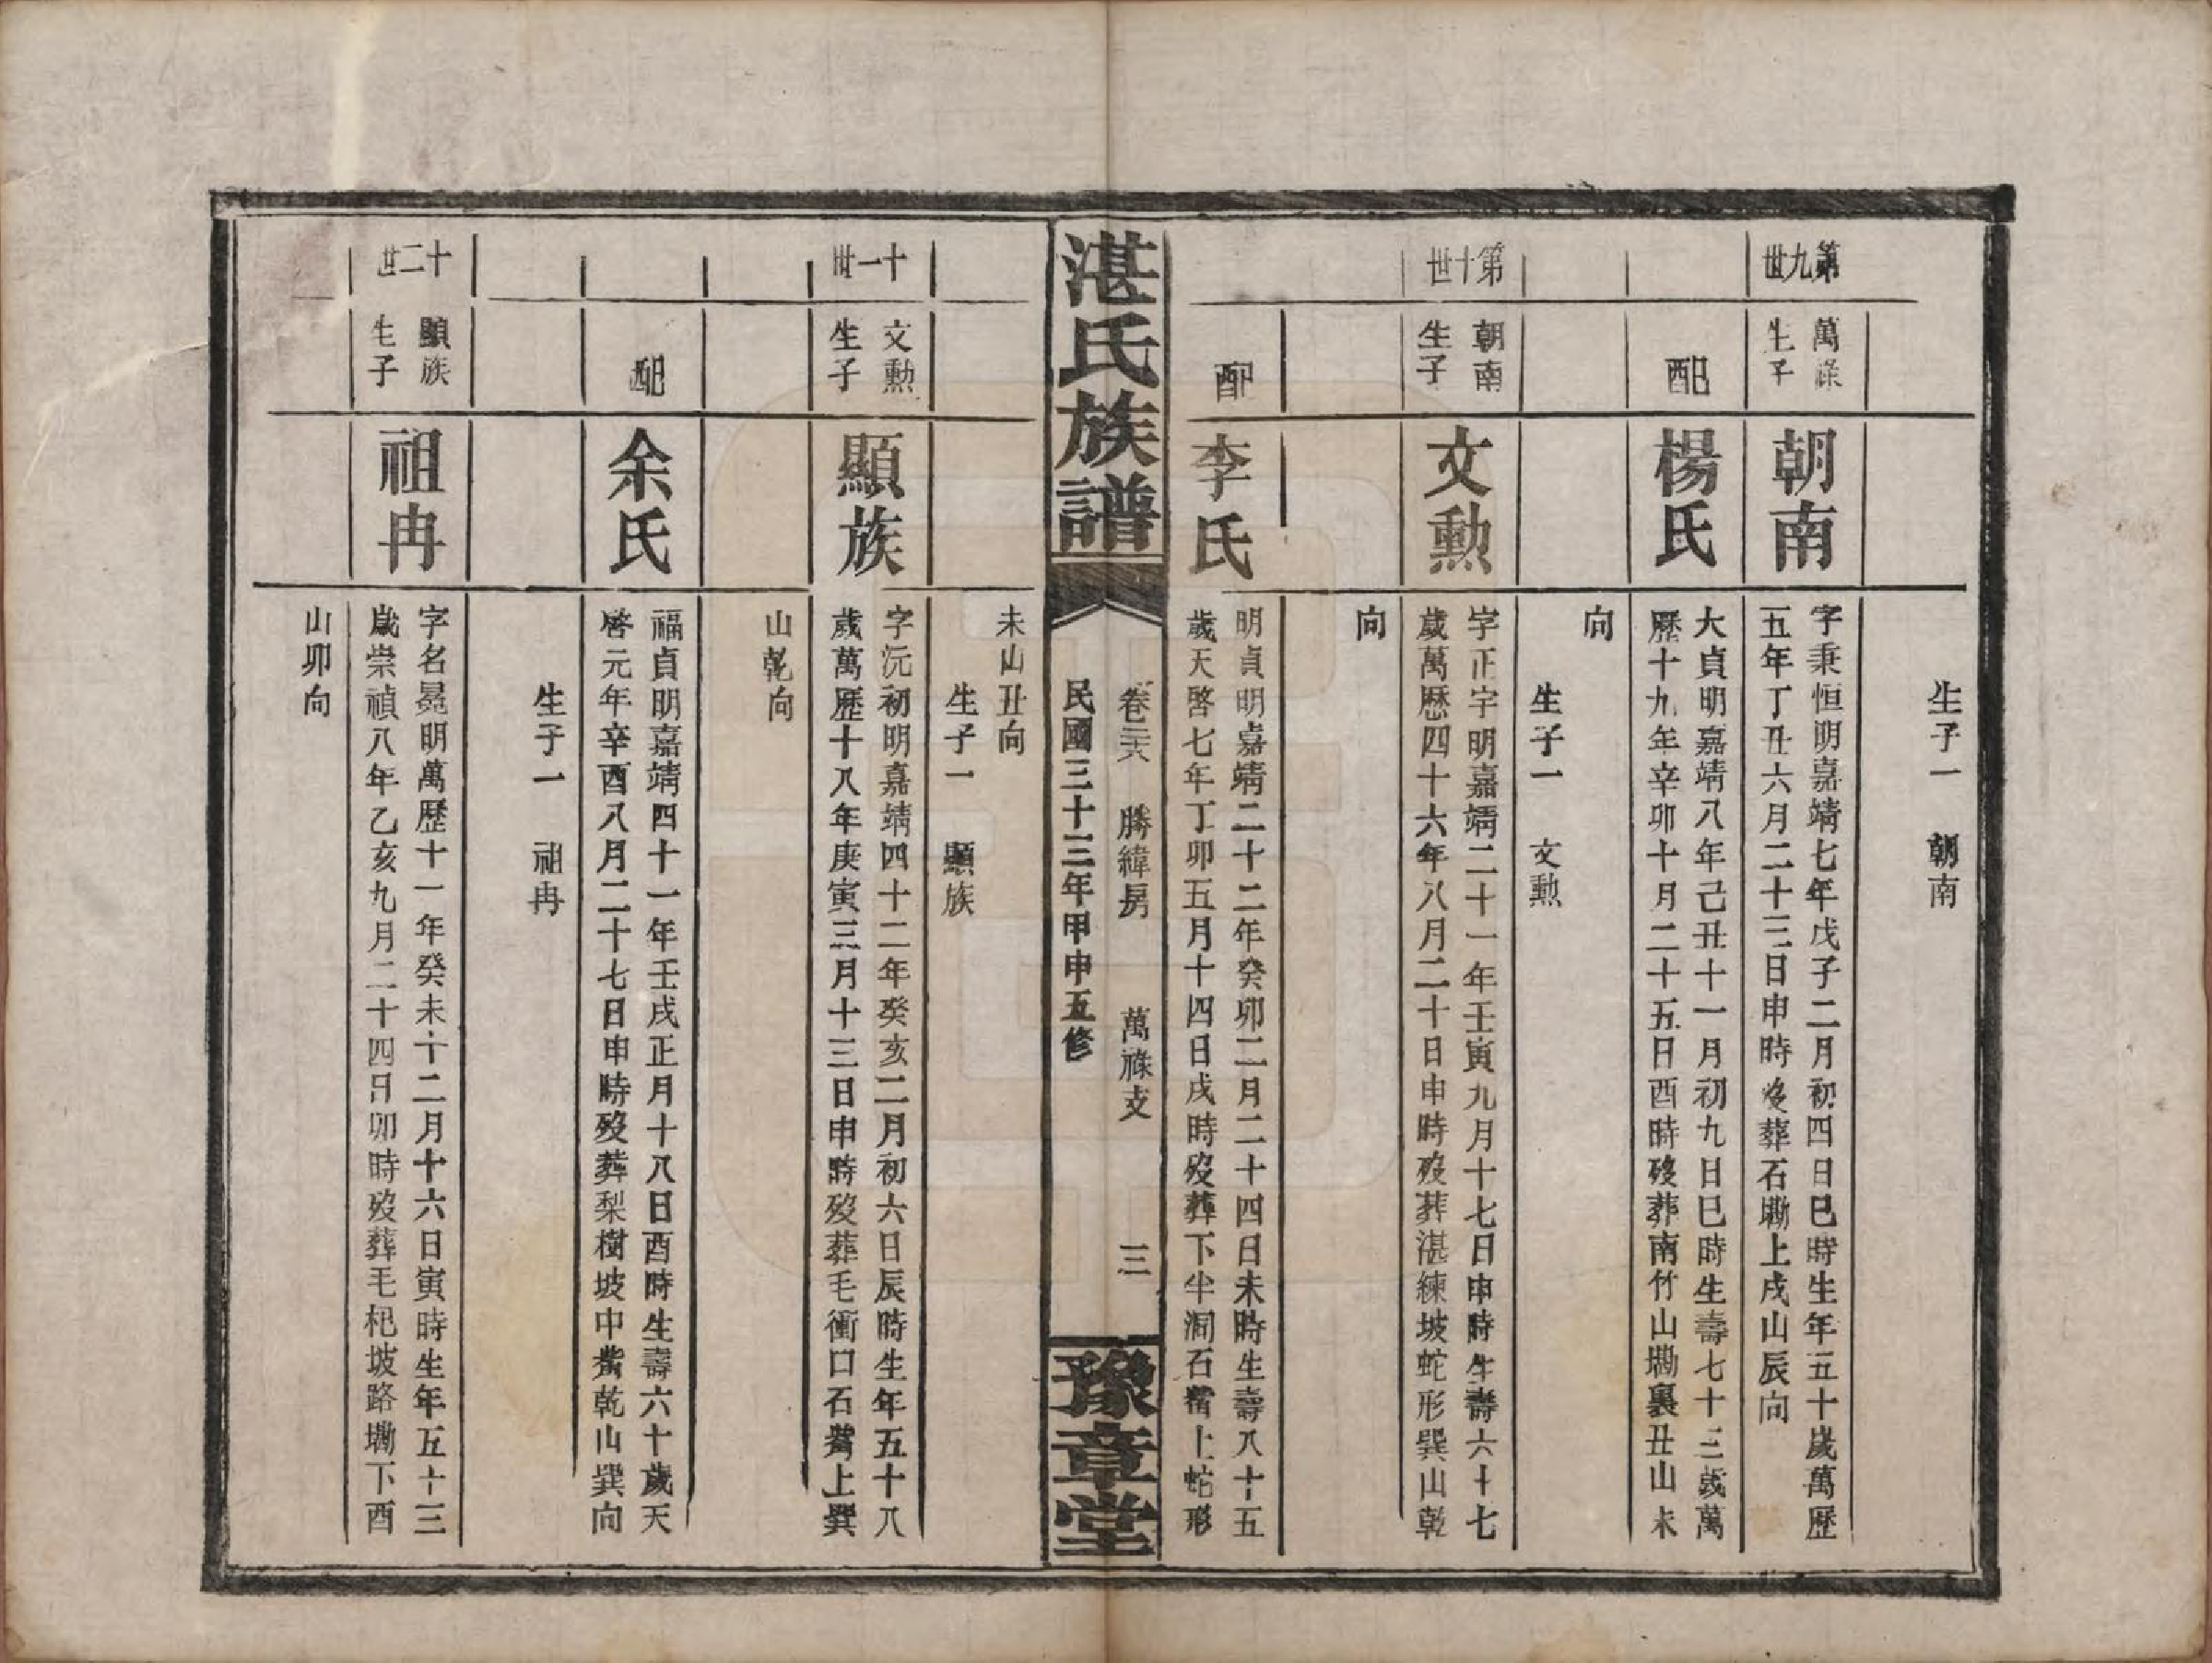 生子一 朝南
第九世
萬祿
生子
朝南
字秉恒明嘉靖七年戊子二月初四日巳時生年五十歲萬歷
五年丁丑六月二十三日申時歿葬石墈上戌山辰向
配
楊氏
大貞明嘉靖八年己丑十一月初九日巳時生壽七十三歲萬
歷十九年辛卯十月二十五日酉時歿葬南竹山墈裏丑山未
向
生子一 文勲
第十世
朝南
生子
文勲
字正字明嘉靖二十一年壬寅九月十七日申時生壽六十七
歲萬歷四十六年八月二十日申時歿葬湛練坡蛇形巽山乾
向
配
李氏
明貞明嘉靖二十二年癸卯二月二十四日未時生壽八十五
歲天啓七年丁卯五月十四日戌時歿葬下半洞石嘴上蛇形
湛氏族譜
卷三六 勝緯房 萬祿支 三
民國三十三年甲申五修
豫章堂
未山丑向
生子一 顯族
十一世
文勲
生子
顯族
字沅初明嘉靖四十二年癸亥二月初六日辰時生年五十八
歲萬歷十八年庚寅三月十三日申時歿葬毛衝口石嘴上巽
山乾向
配
余氏
福貞明嘉靖四十一年壬戌正月十八日酉時生壽六十歲天
啓元年辛酉八月二十七日申時歿葬梨樹坡中嘴乾山巽向
生子一 祖冉
十二世
顯族
生子
祖冉
字名晃明萬歷十一年癸未十二月十六日寅時生年五十三
歲崇禎八年乙亥九月二十四日卯時歿葬毛杷坡路墈下酉
山卯向